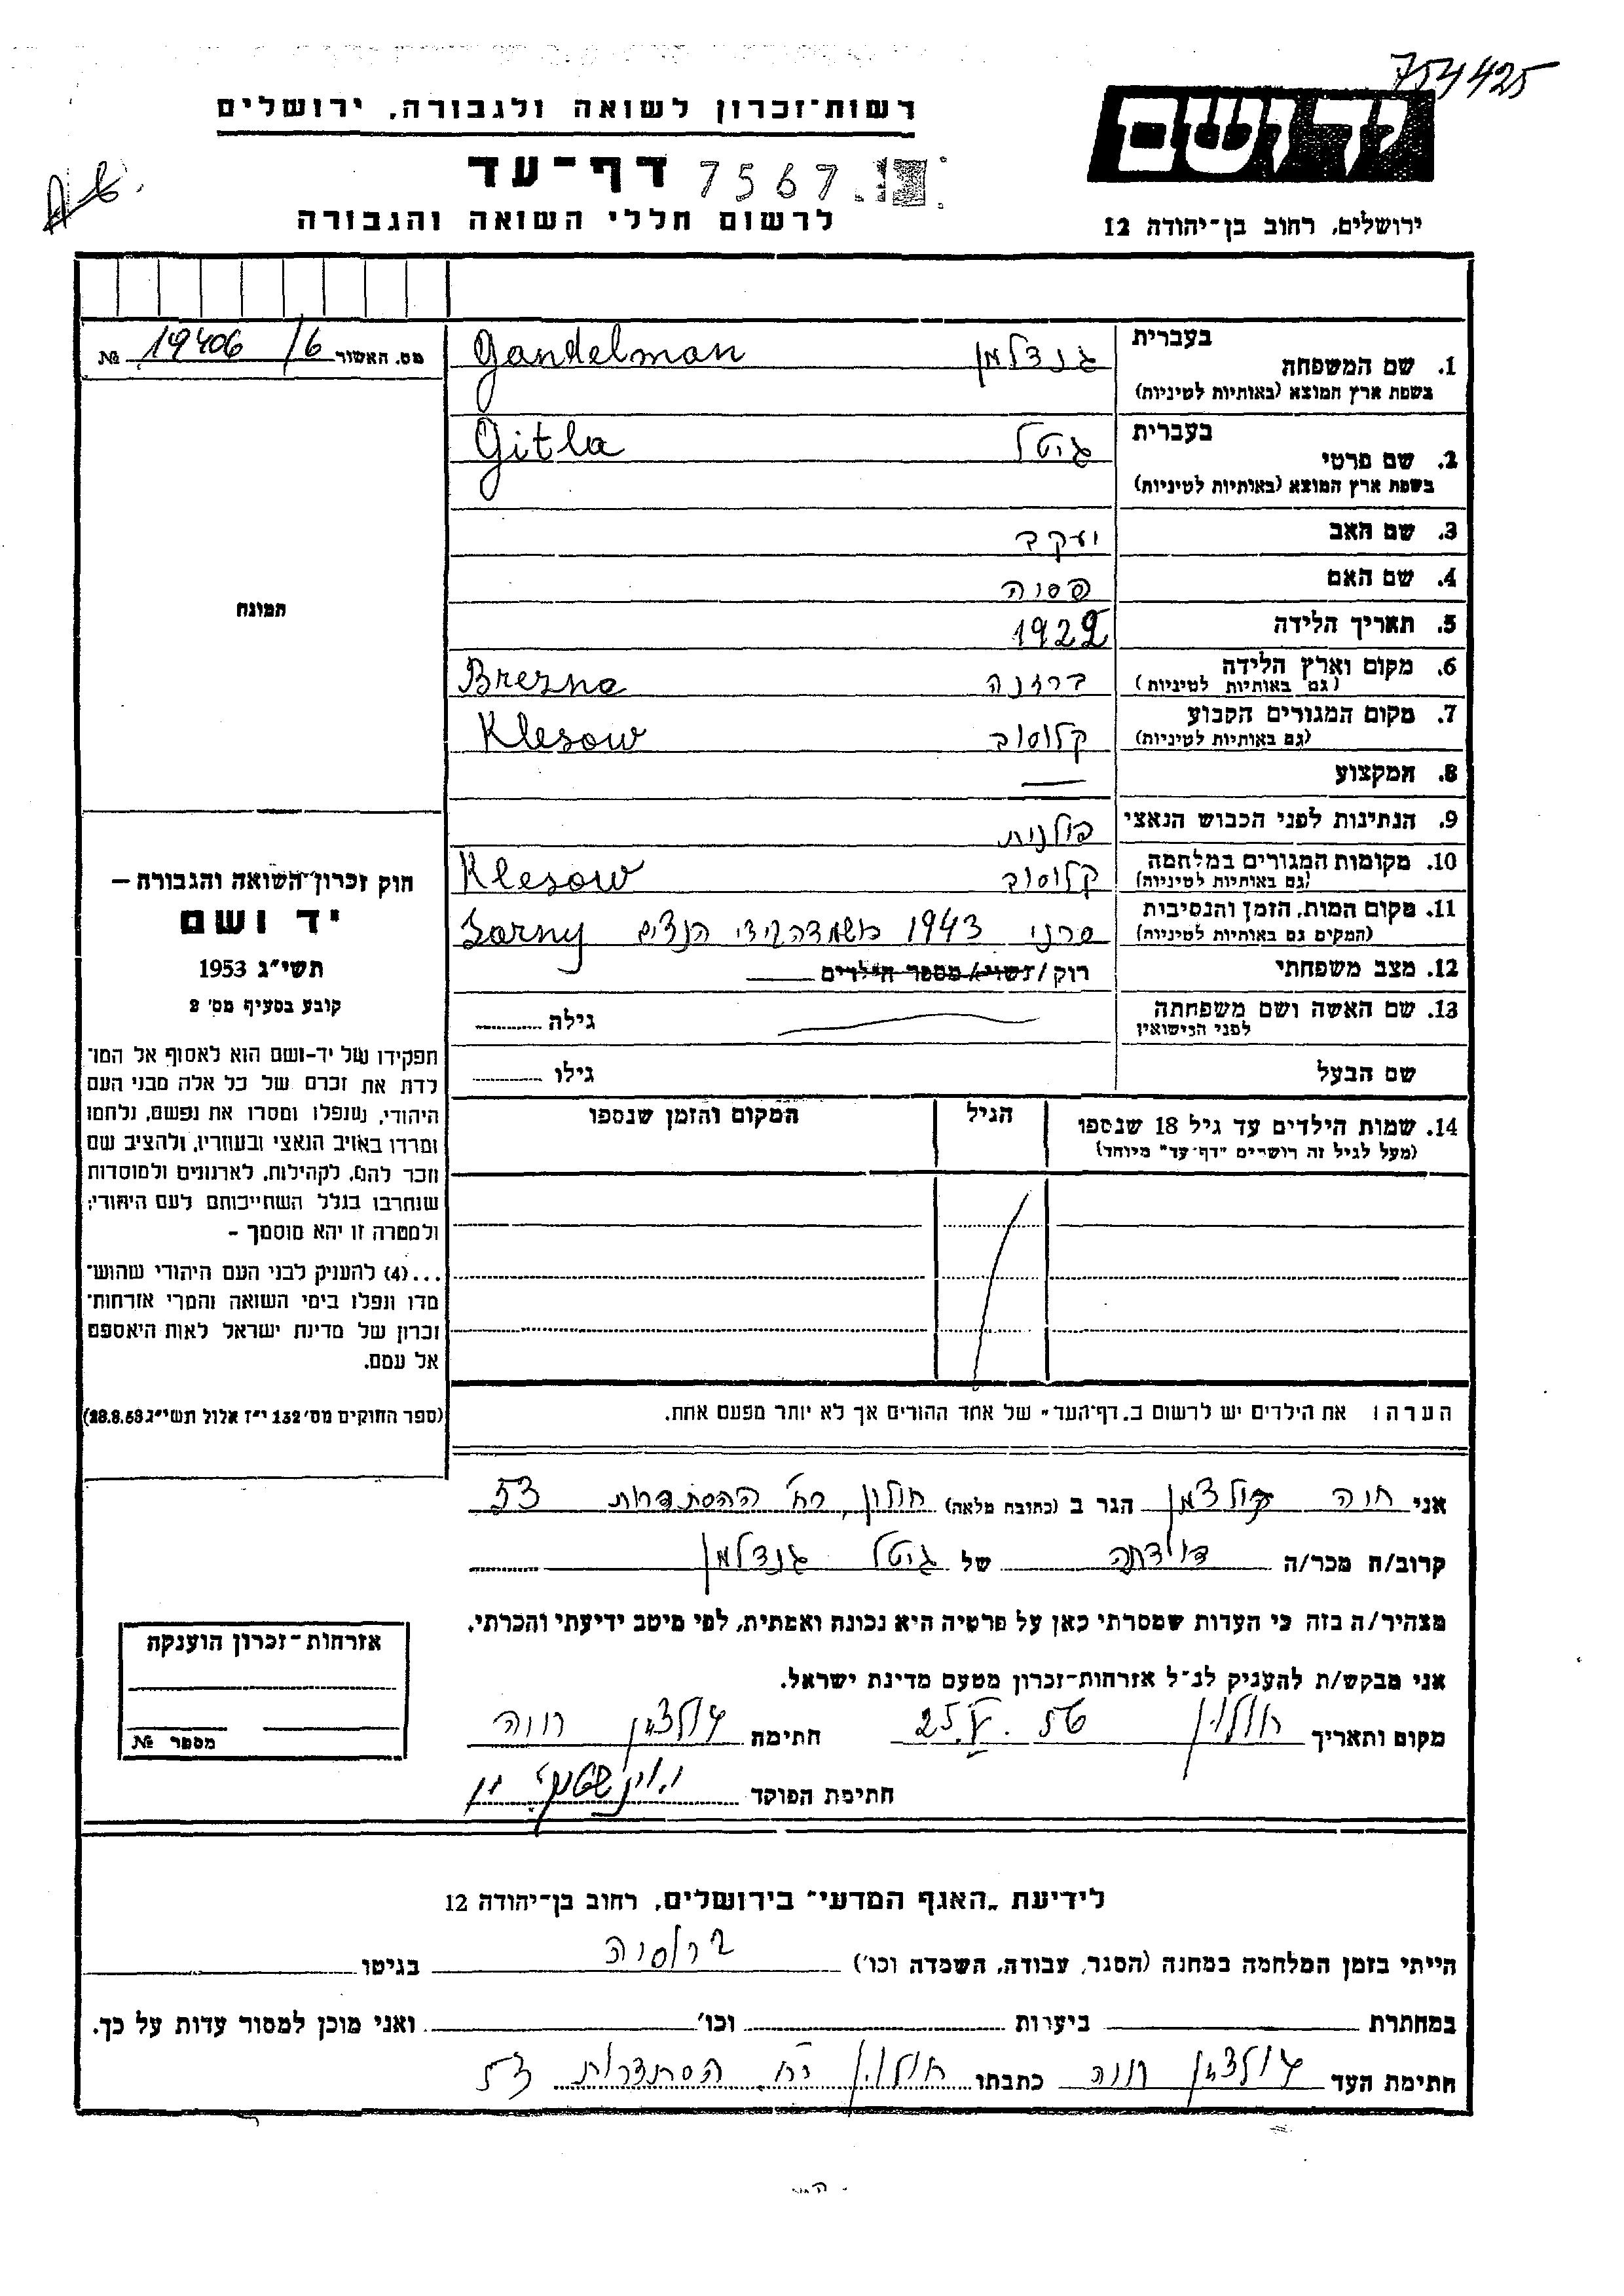 754425
רשות־זכרון לשואה ולגבורה, ירושלים
יד ושם
דף־עד 7567
לרשום חללי השואה והגבורה
ירושלים, רחוב בן־יהודה 12
מס. האשור 19406/6 №
בעברית
1. שם המשפחה גנדלמן Gandelman
בשפת ארץ המוצא (באותיות לטיניות)
בעברית
2. שם פרטי גיטל Gitla
בשפת ארץ המוצא (באותיות לטיניות)
3. שם האב יעקב
4. שם האם פסיה
5. תאריך הלידה 1922
6. מקום וארץ הלידה ברזנה Brezne
(גם באותיות לטיניות)
7. מקום המגורים הקבוע קלוסוב Klesow
(גם באותיות לטיניות)
8. המקצוע —
9. הנתינות לפני הכבוש הנאצי פולנית
10. מקומות המגורים במלחמה קלוסוב Klesow
(גם באותיות לטיניות)
11. מקום המות, הזמן והנסיבות סרני 1943 הנצים Sarny
(המקום גם באותיות לטיניות)
12. מצב משפחתי רוק/נשוי/מספר הילדים
13. שם האשה ושם משפחתה גילה
לפני הנישואין
שם הבעל גילו
14. שמות הילדים עד גיל 18 שנספו הגיל המקום והזמן שנספו
(מעל לגיל זה רושמים "דף־עד" מיוחד)
הערה: את הילדים יש לרשום ב„דף־העד" של אחד ההורים אך לא יותר מפעם אחת.
תמונת
חוק זכרון־השואה והגבורה —
יד ושם
תשי״ג 1953
קובע בסעיף מס׳ 2
תפקידו של יד-ושם הוא לאסוף אל המו־
לדת את זכרם של כל אלה מבני העם
היהודי, שנפלו ומסרו את נפשם, נלחמו
ומרדו באויב הנאצי ובעוזריו, ולהציב שם
וזכר להם, לקהילות, לארגונים ולמוסדות
שנחרבו בגלל השתייכותם לעם היהודי;
ולמטרה זו יהא מוסמך -
...(4) להעניק לבני העם היהודי שהוש־
מדו ונפלו בימי השואה והמרי אזרחות־
זכרון של מדינת ישראל לאות היאספם
אל עמם.
(ספר החוקים מס׳ 132 י״ז אלול תשי״ג 28.8.53)
אני חוה הגר ב (כתובת מלאה) חולון, רח׳ ההסתדרות 53
קרוב/ה מכר/ה דודתה של גיטל גנדלמן
מצהיר/ה בזה כי העדות שמסרתי כאן על פרטיה היא נכונה ואמתית, לפי מיטב ידיעתי והכרתי.
אני מבקש/ת להעניק לנ״ל אזרחות־זכרון מטעם מדינת ישראל.
מקום ותאריך חולון 25.V.56 חתימה חוה
חתימת הפוקד
אזרחות־זכרון הוענקה
מספר №
לידיעת „האגף המדעי" בירושלים, רחוב בן־יהודה 12
הייתי בזמן המלחמה במחנה (הסגר, עבודה, השמדה וכו׳) ברוסיה בגיטו
במחתרת ביערות וכו׳ ואני מוכן למסור עדות על כך.
חתימת העד חוה כתבתו חולון רח׳ הסתדרות 53